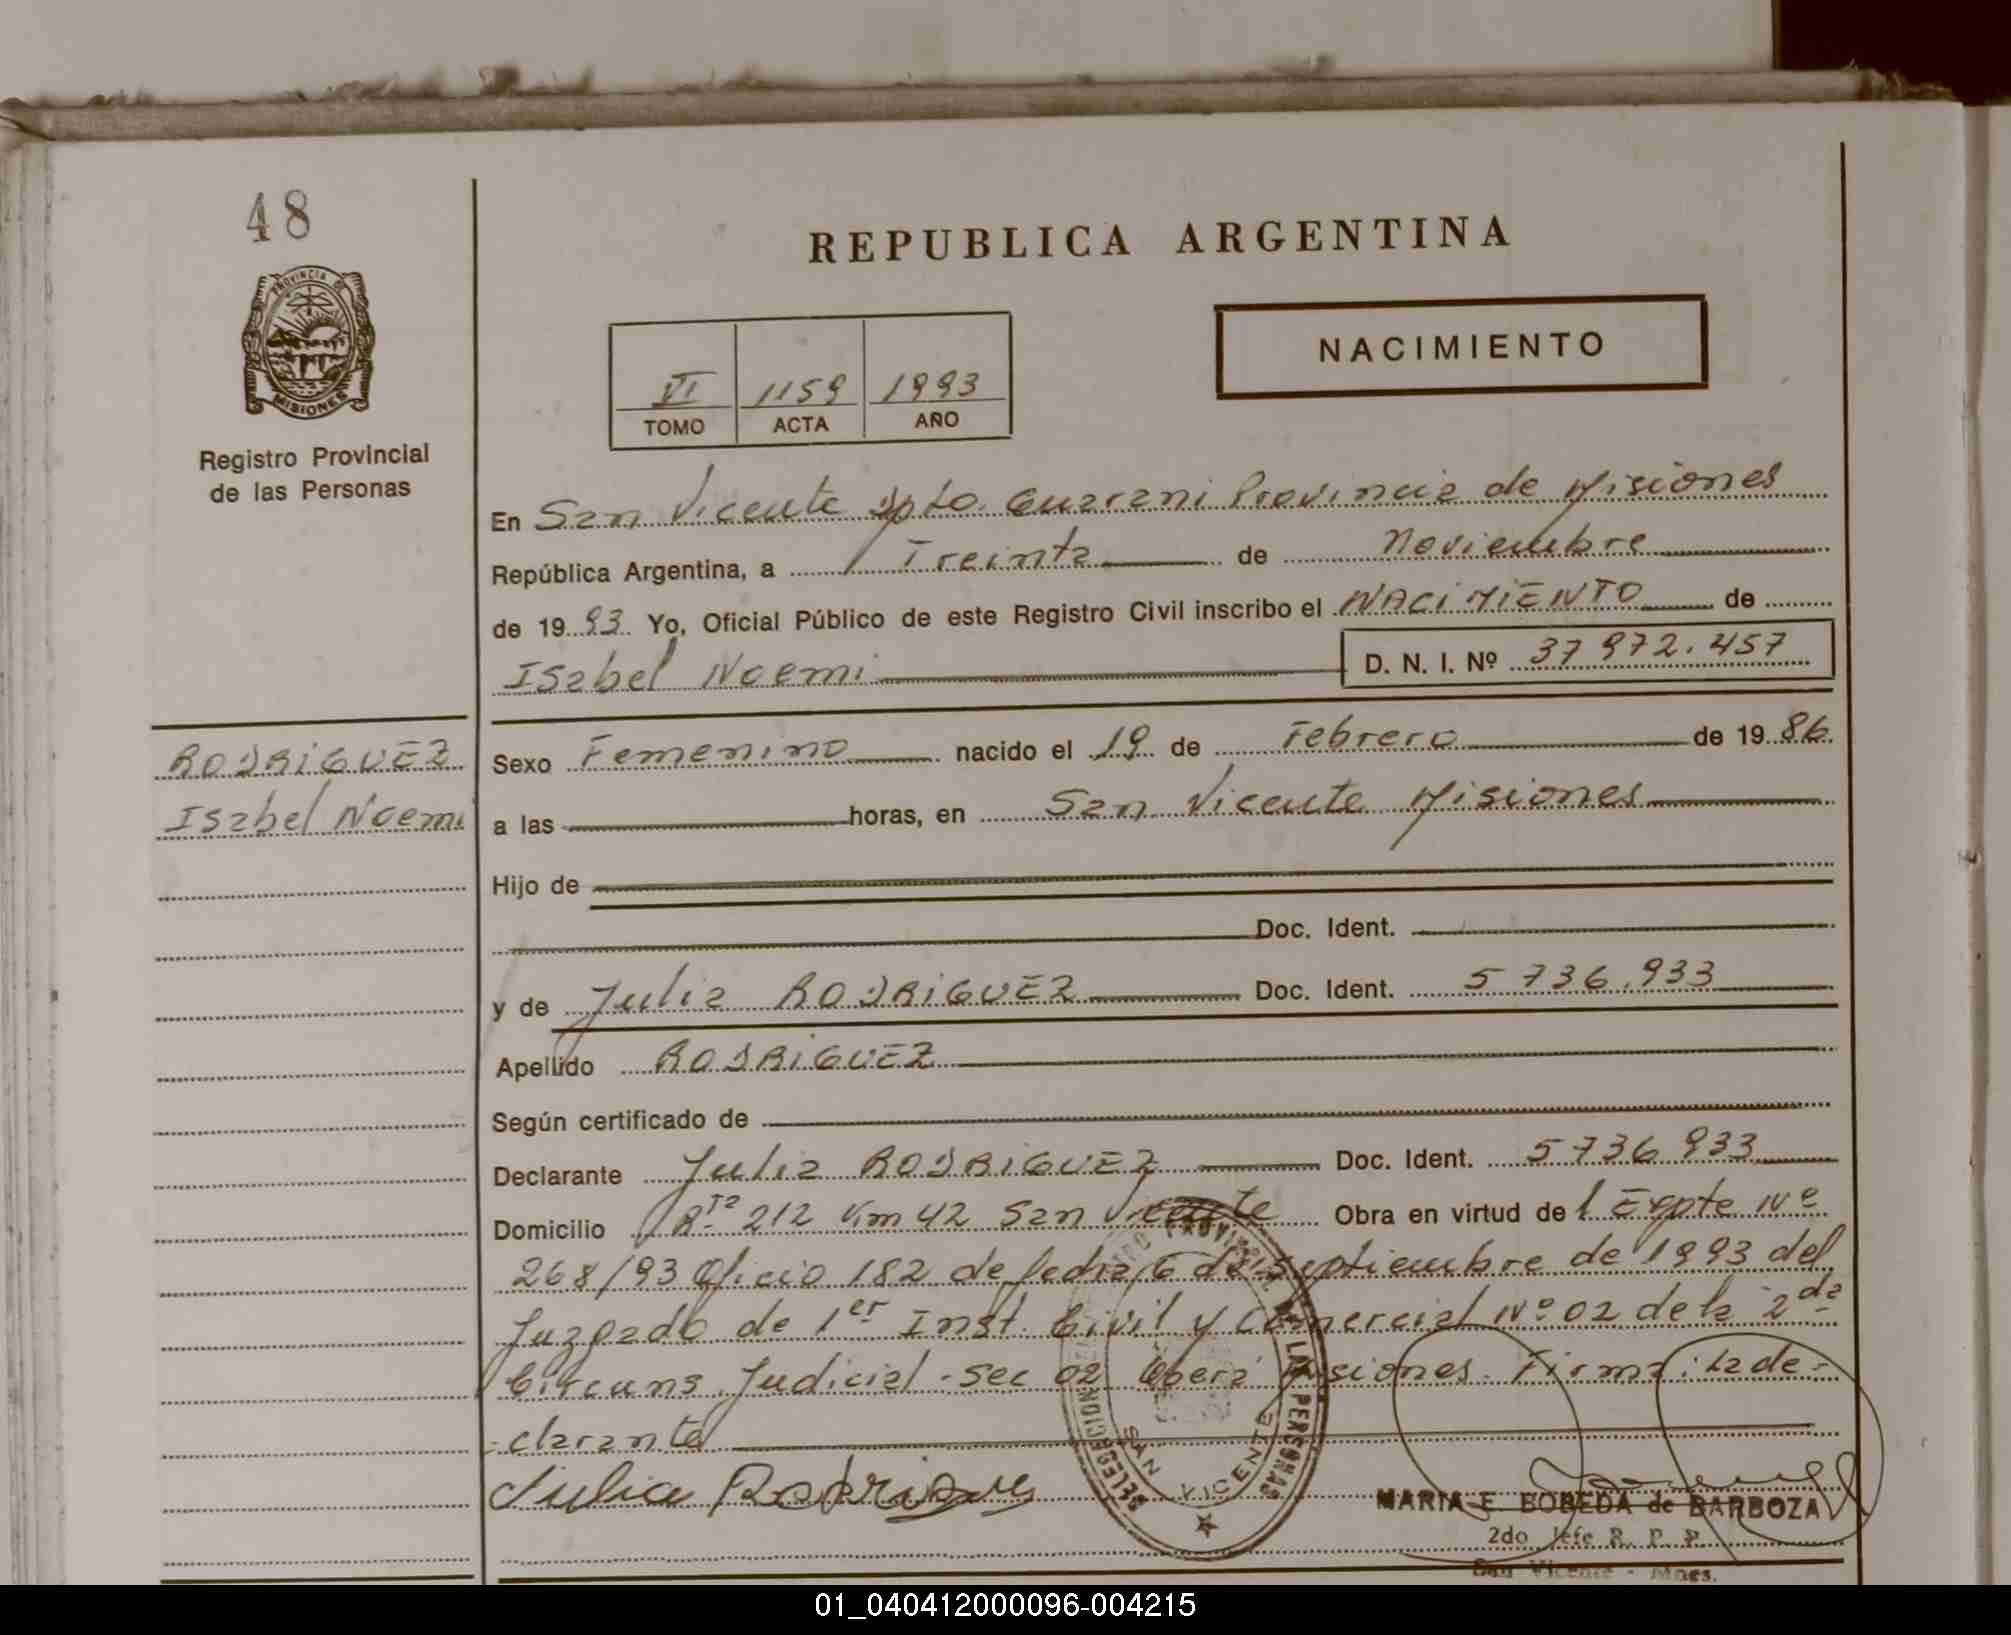 48
REPUBLICA ARGENTINA
PROVINCIA DE
MISIONES
NACIMIENTO
VI 1159 1993
TOMO ACTA AÑO
Registro Provincial
de las Personas
En San Vicente Dpto. Guarani Provincia de Misiones
República Argentina, a Treinta de Noviembre
de 1993 Yo, Oficial Público de este Registro Civil inscribo el NACIMIENTO de
Isabel Noemi D. N. I. Nº 37 972.457
RODRIGUEZ
Isabel Noemi
Sexo Femenino nacido el 19 de Febrero de 1986
a las horas, en San Vicente Misiones
Hijo de
Doc. Ident.
y de Julia RODRIGUEZ Doc. Ident. 5 736.933
Apellido RODRIGUEZ
Según certificado de
Declarante Julia RODRIGUEZ Doc. Ident. 5 736 933
Domicilio Rta 212 Km 42 San Vicente Obra en virtud del Expte Nº
268/93 Oficio 182 de fecha 6 de Septiembre de 1993 del
Juzgado de 1er Inst. Civil y Comercial Nº 02 de la 2da
Circuns. Judicial - Sec 02 Oberá Misiones. Firma: la de-
clarante
Julia Rodrigue
DELEGACION
DE LAS PERSONAS
SAN VICENTE
MARIA E. BOBEDA de BARBOZA
2do Jefe R. P. P.
San Vicente - Mnes.
01_040412000096-004215